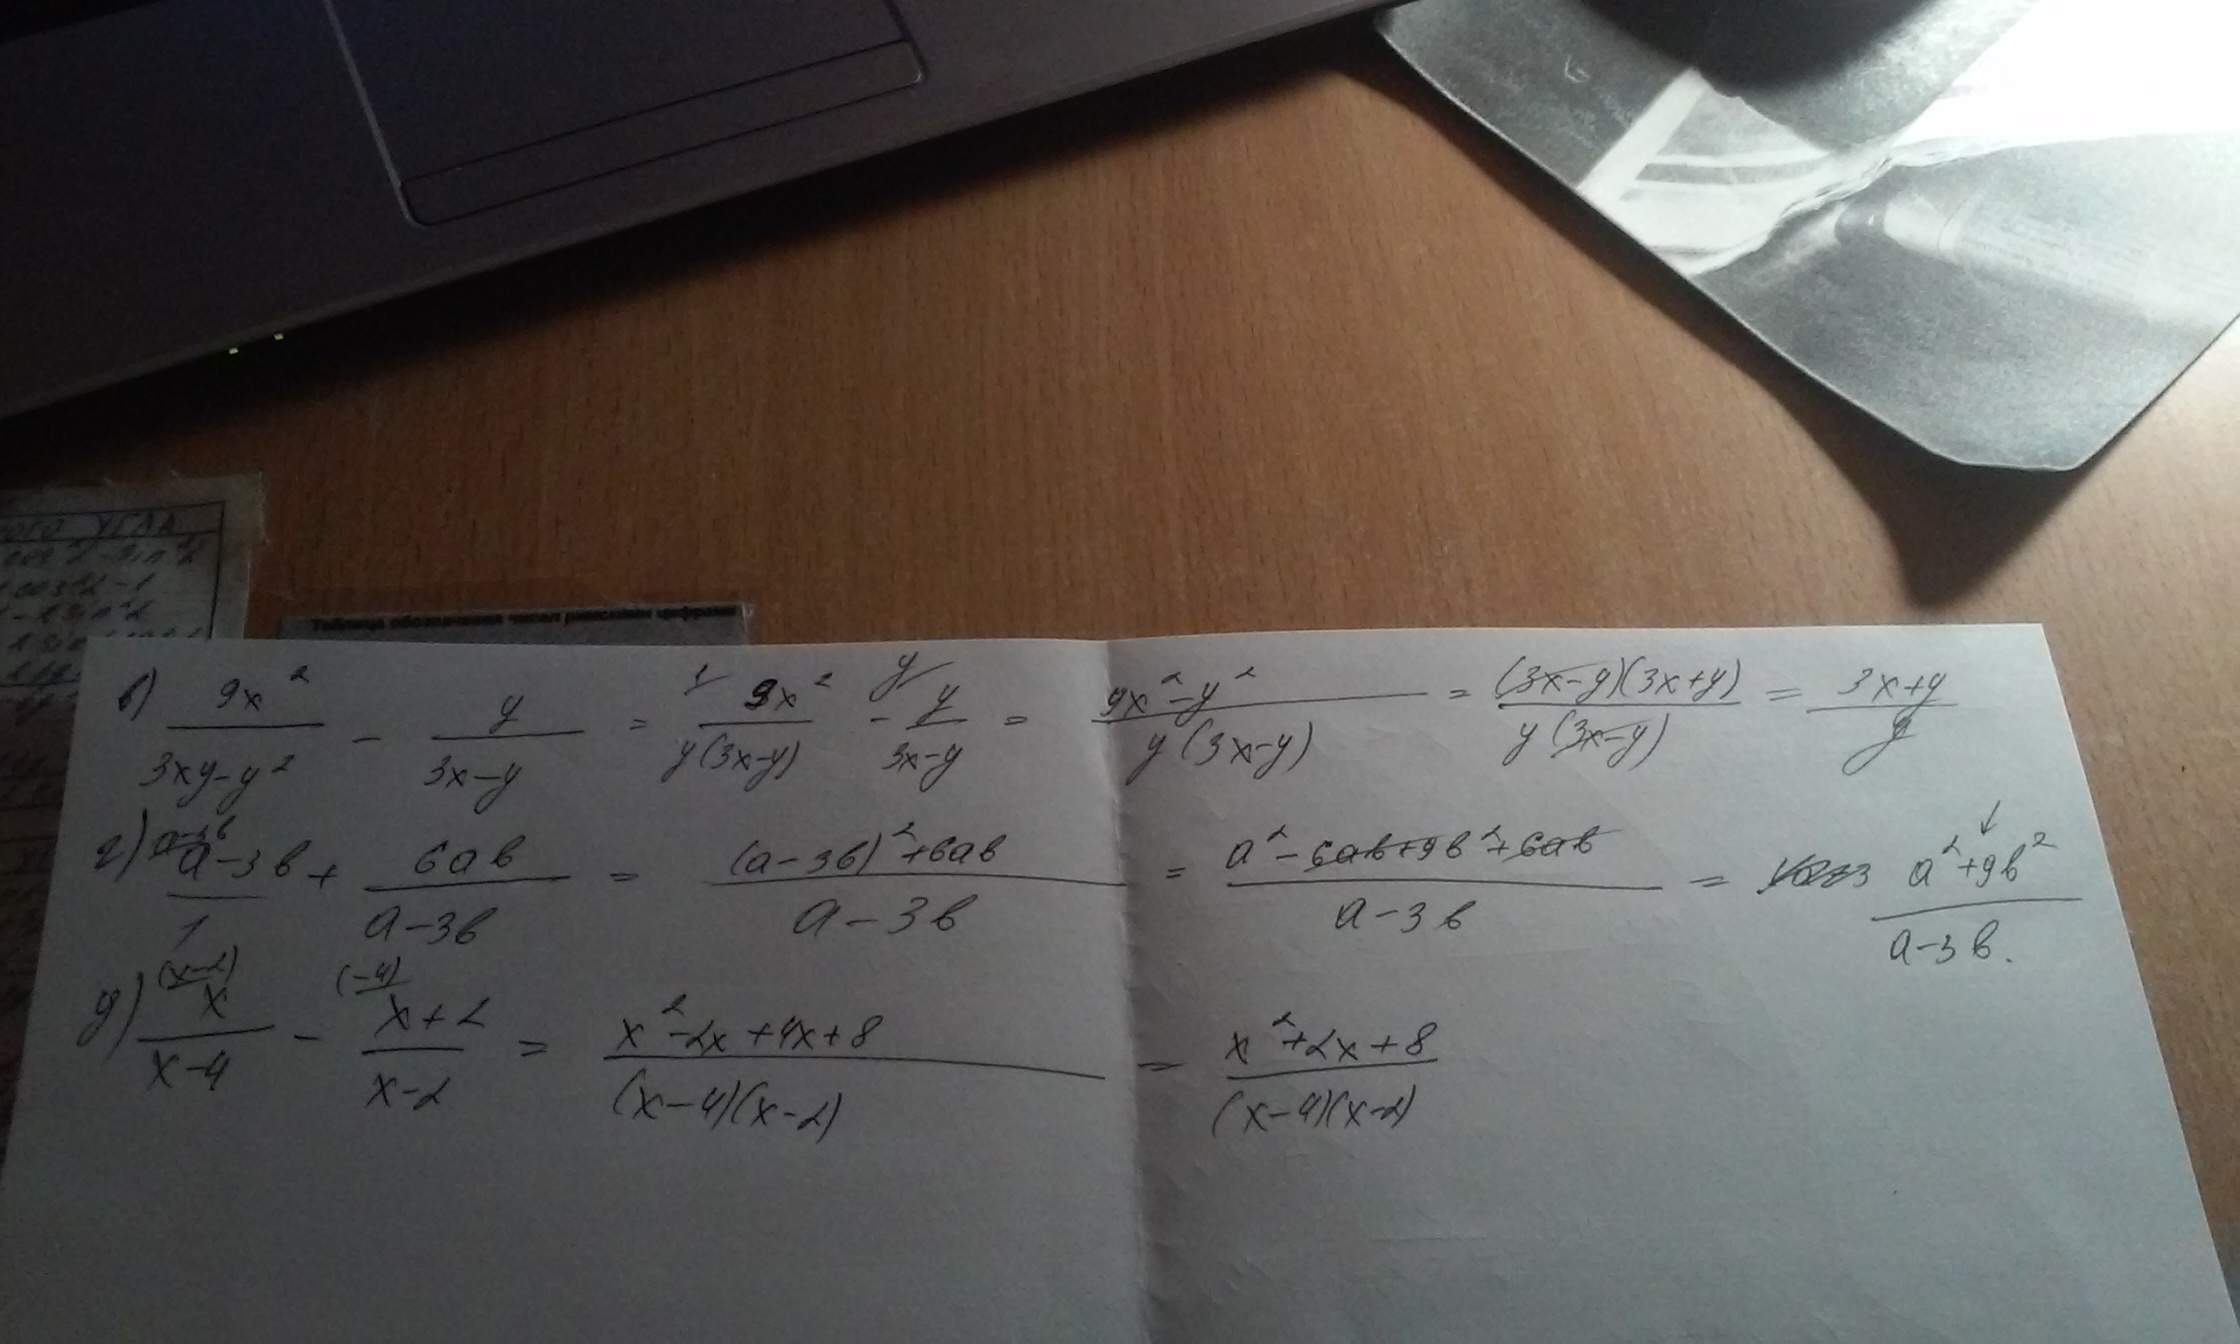 ного угла
Таблица обозначения чисел римскими цифрами
в) 9x²/(3xy-y²) - y/(3x-y) = 1/ 9x²/(y(3x-y)) - y/ y/(3x-y) = (9x²-y²)/(y(3x-y)) = ((3x-y)(3x+y))/(y(3x-y)) = (3x+y)/y
г) a-3в/ (a-3в)/1 + 6aв/(a-3в) = ((a-3в)²+6aв)/(a-3в) = (a²-6aв+9в²+6aв)/(a-3в) = (a²+9в²)/(a-3в).
д) (x-2)/ x/(x-4) - (-4)/ (x+2)/(x-2) = (x²-2x+4x+8)/((x-4)(x-2)) = (x²+2x+8)/((x-4)(x-2))